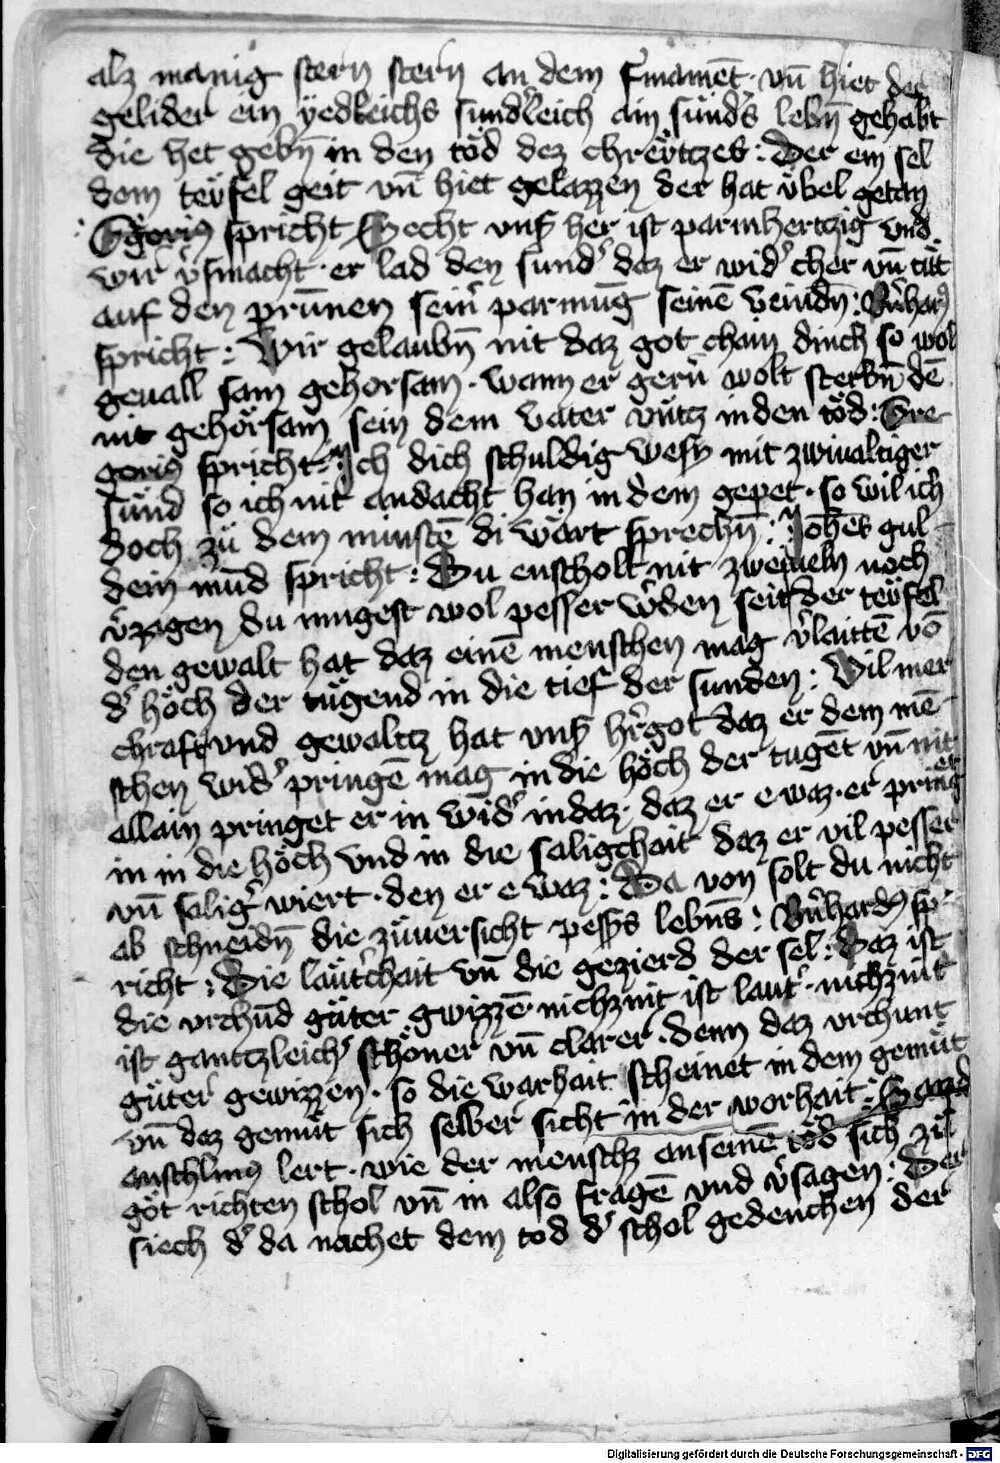 alz manig stern stern an dem fmamēt · vn̄ hiet der
gelider ein ÿedleichs sundˀleich ain sündˀs lebn̄ gehabt
die het gebn̄ in den töd dez chrëwtzes : Der ein sel
dem teüfel geit vn̄ hiet gelazzen der hat übel getan
Ggoriꝰ spricht Secht vnsˀ her ist parmhertzig vnd
wir vˀsmacht · er lad den sundˀ daz er widˀ cher vn̄ tüt
auf den prūnen seinˀ parmūg seinē veindn̄ : Bˀnharꝰ
spricht : Wir gelaubn̄ nit daz got chain dinch so wol
geuall sam gehorsam · wann er gernˀ wolt sterbn̄ dē
nit gehörsam sein dem vater vūtz in den töd : Gre
goriꝰ spricht : Ich dich schuldig wesn̄ mit zwiualtiger
sünd so ich nit andacht han in dem gepet · so wil ich
doch zü dem minstē di wart sprechn̄ : Johēs gul
dein mūd spricht : Du enscholt nit zweiueln noch
vˀzagen du mugest wol pesser wˀden seit der teüfel
den gewalt hat daz einē menschen mag vˀlaittē vō
dˀ höch der tugend in die tief der sunden : Vil mer
chraft vnd gewaltz hat vnsˀ hˀrgot daz er dem mē
schen widˀ pringē mag in die höch der tugēt vn̄ nit
allain pringet er in widˀ in daz · daz er e waz · er pringet
in in die höch vnd in die saligchait daz er vil pesser
vn̄ saligˀ wiert · den er e waz : Da von solt du nicht
ab schneidn̄ die züuersicht pessˀs lebn̄s : Bˀnhardꝰ sp
richt : Die lautˀchait vn̄ die gezierd der sel : Daz ist
die vrchūd güter gwizzē · nichz nit ist lautˀ · nichz nit
ist gantzleichˀ schöner vn̄ clarer · denn daz vrchunt
güter gewizzen · so die warhait scheinet in dem gemüt
vn̄ daz gemüt sich selber sicht in der worhait : Sand
anschlmꝰ lert · wie der mensch an seinē töd sich zü
göt richten schol vn̄ in also fragē vnd vˀsagen : Der
siech dˀ da nachet dem tod dˀ schol gedenchen der
Digitalisierung gefördert durch die Deutsche Forschungsgemeinschaft - DFG